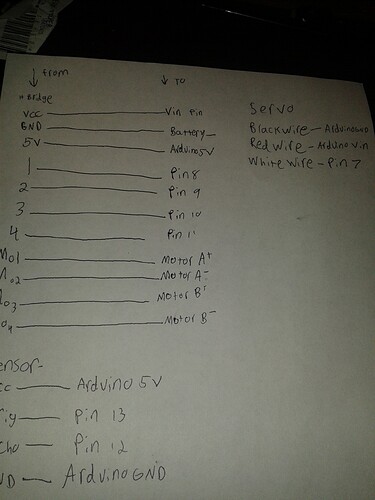 from to
H Bridge
VCC Vin Pin
GND Battery-
5V Arduino 5V
1 Pin 8
2 Pin 9
3 Pin 10
4 Pin 11
Mo1 Motor A+
Mo2 Motor A-
Mo3 Motor B+
Mo4 Motor B-
Servo
Black wire - Arduino GND
Red wire - Arduino Vin
White wire - Pin 7
ensor-
cc Arduino 5V
rig Pin 13
cho Pin 12
ND Arduino GND